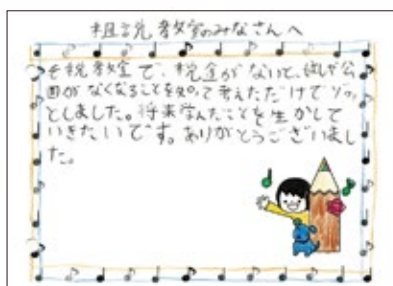 租税教室のみなさんへ
租税教室で、税金がないと、橋や公
園がなくなることを知って考えただけでゾッ
としました。将来学んだことを生かして
いきたいです。ありがとうございまし
た。